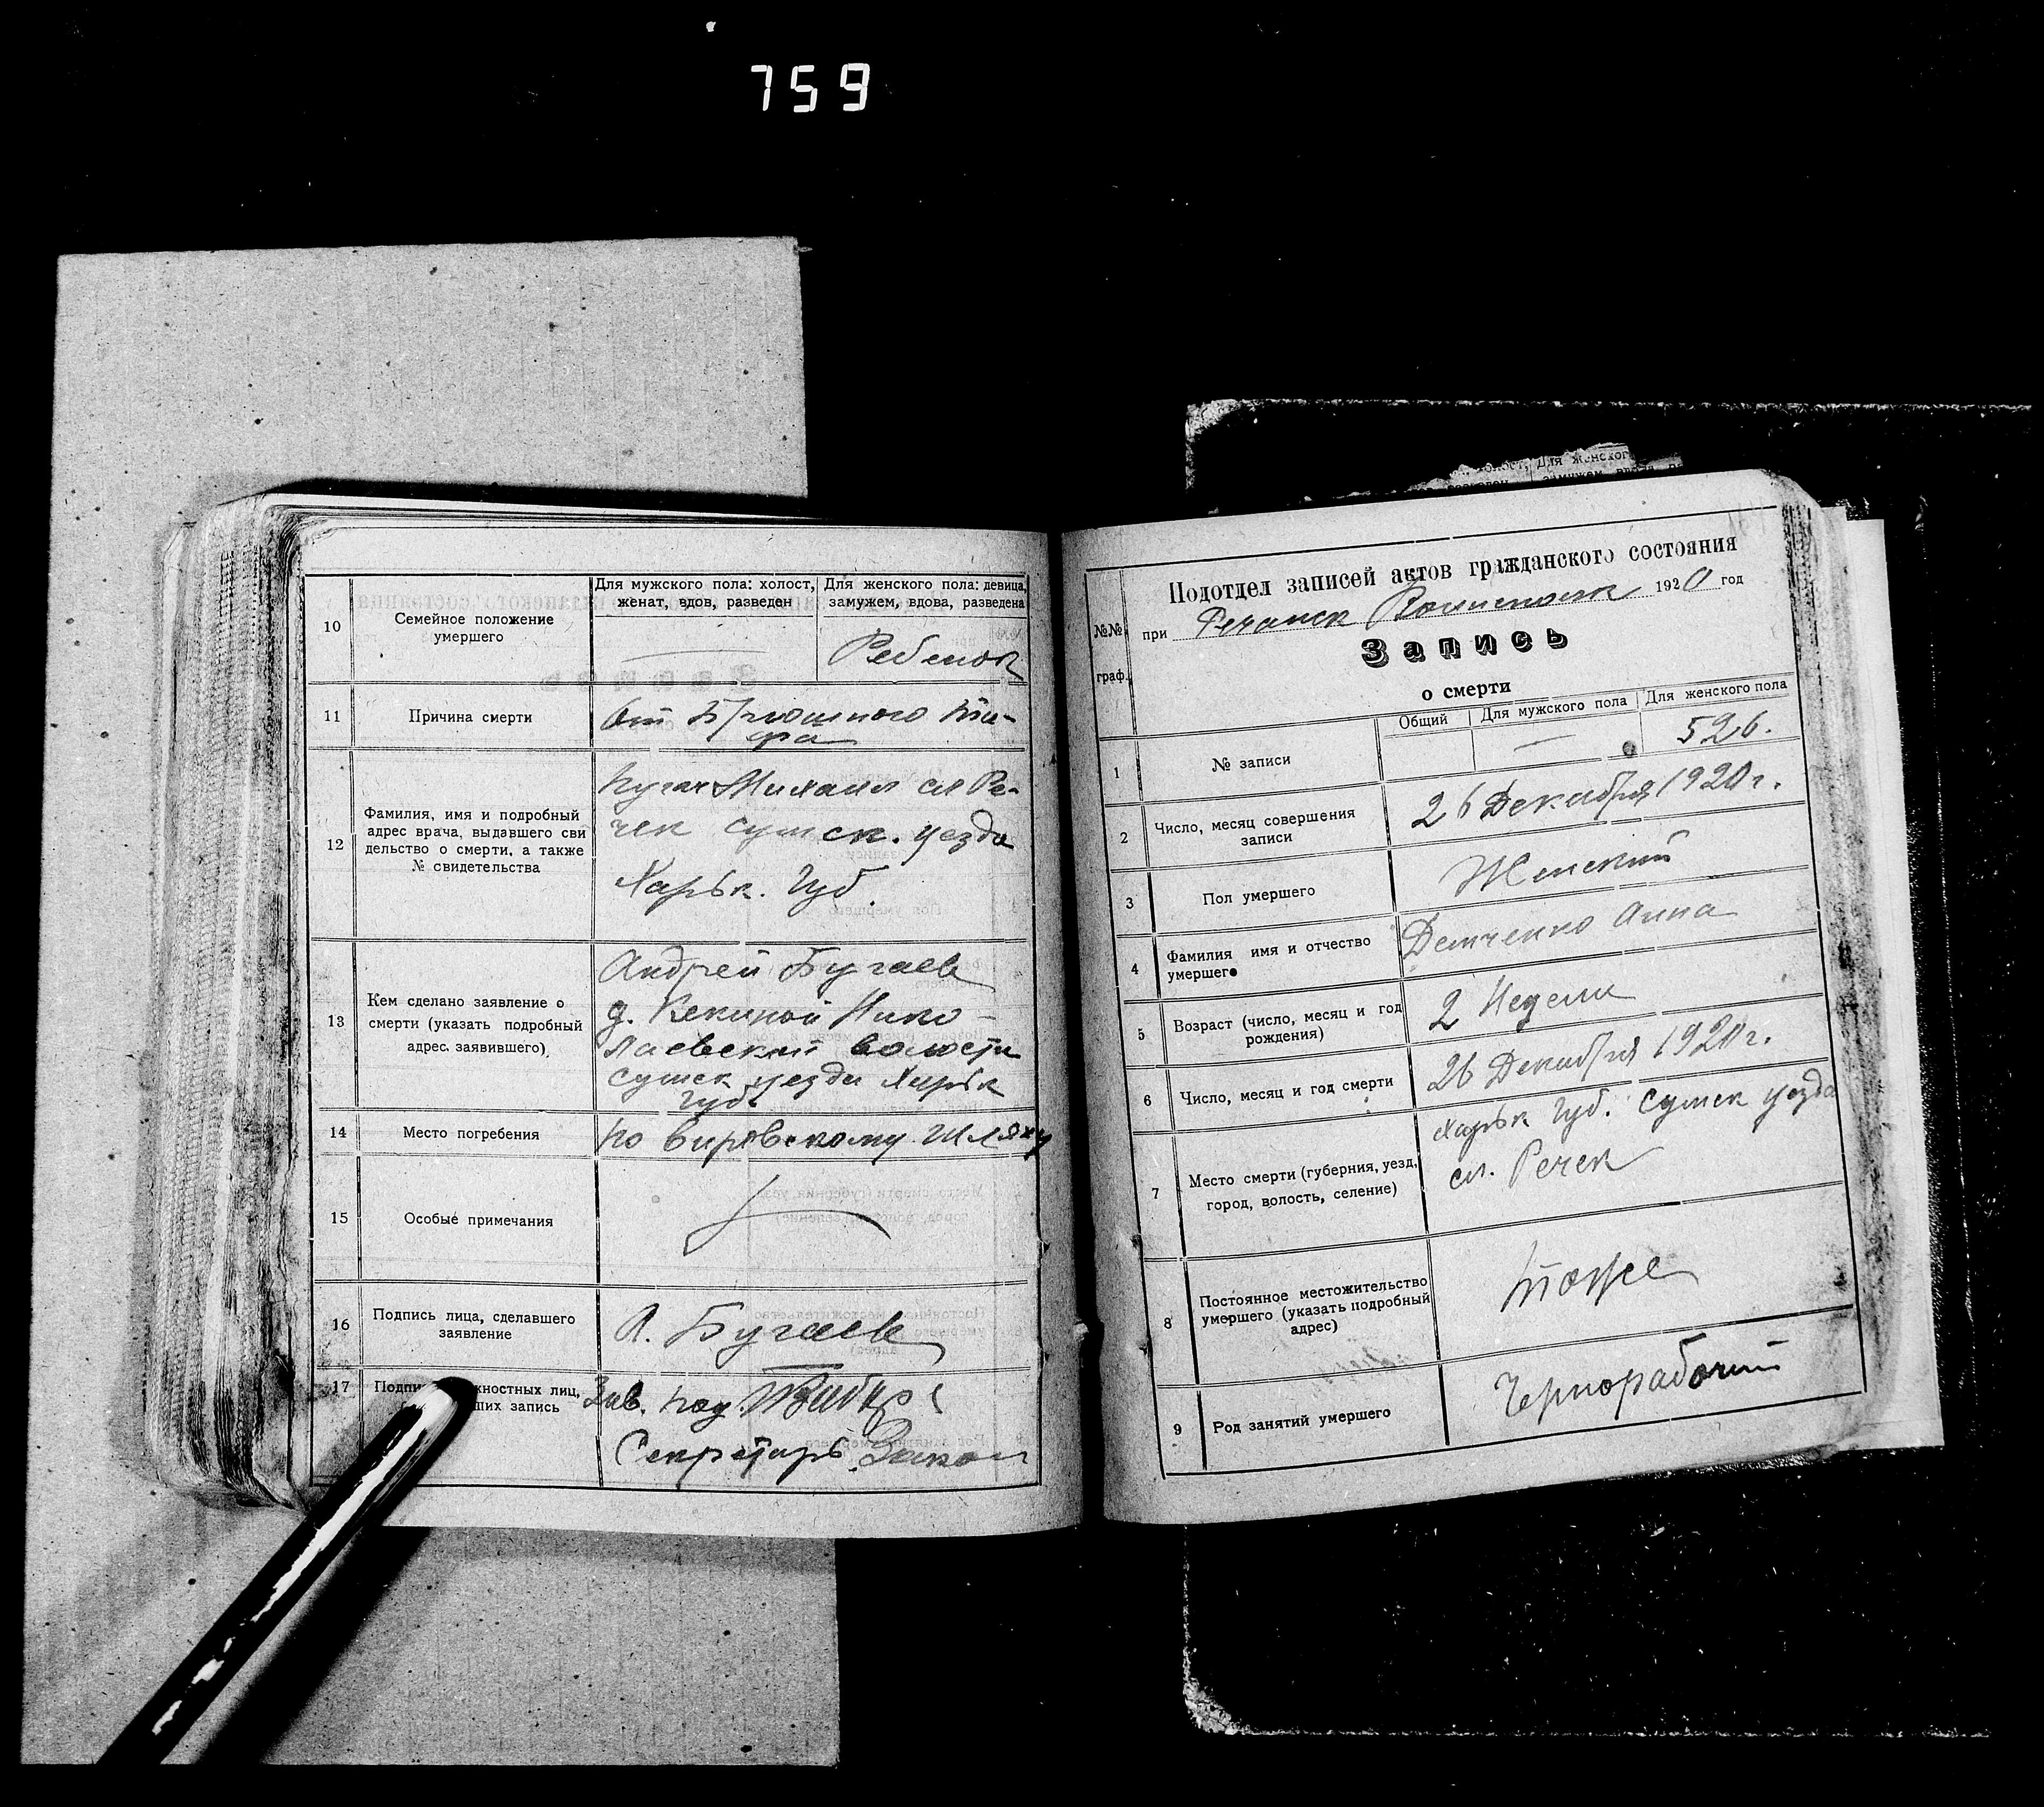 759
10
Семейное положение
умершего
Для мужского пола: холост,
женат, вдов, разведен
Для женского пола: девица,
замужем, вдова, разведена
Ребенок
11
Причина смерти
От Брюшного ти-
фа
12
Фамилия, имя и подробный
адрес врача, выдавшего сви
дельство о смерти, а также
№ свидетельства
Михаил сл Ре-
чек сумск. уезда
Харьк. Губ.
13
Кем сделано заявление о
смерти (указать подробный
адрес. заявившего)
Андрей Бугаев
д. Нико-
лаевской волости
сумск уезда Харьк
губ.
14
Место погребения
по вировскому шляху
15
Особые примечания
16
Подпись лица, сделавшего
заявление
А. Бугаев
17
Зав. под
Секретарь
Подотдел записей актов гражданского состояния
при 1920 год
№№
граф.
Запись
о смерти
Общий
Для мужского пола
Для женского пола
1
№ записи
526.
2
Число, месяц совершения
записи
26 Декабря 1920 г.
3
Пол умершего
Женский
4
Фамилия имя и отчество
умершего
Демченко Анна
5
Возраст (число, месяц и год
рождения)
2 Недели
6
Число, месяц и год смерти
26 Декабря 1920 г.
7
Место смерти (губерния, уезд,
город, волость, селение)
Харьк губ. Сумск уезда
сл. Речек
8
Постоянное местожительство
умершего (указать подробный
адрес)
тоже
9
Род занятий умершего
Чернорабочий